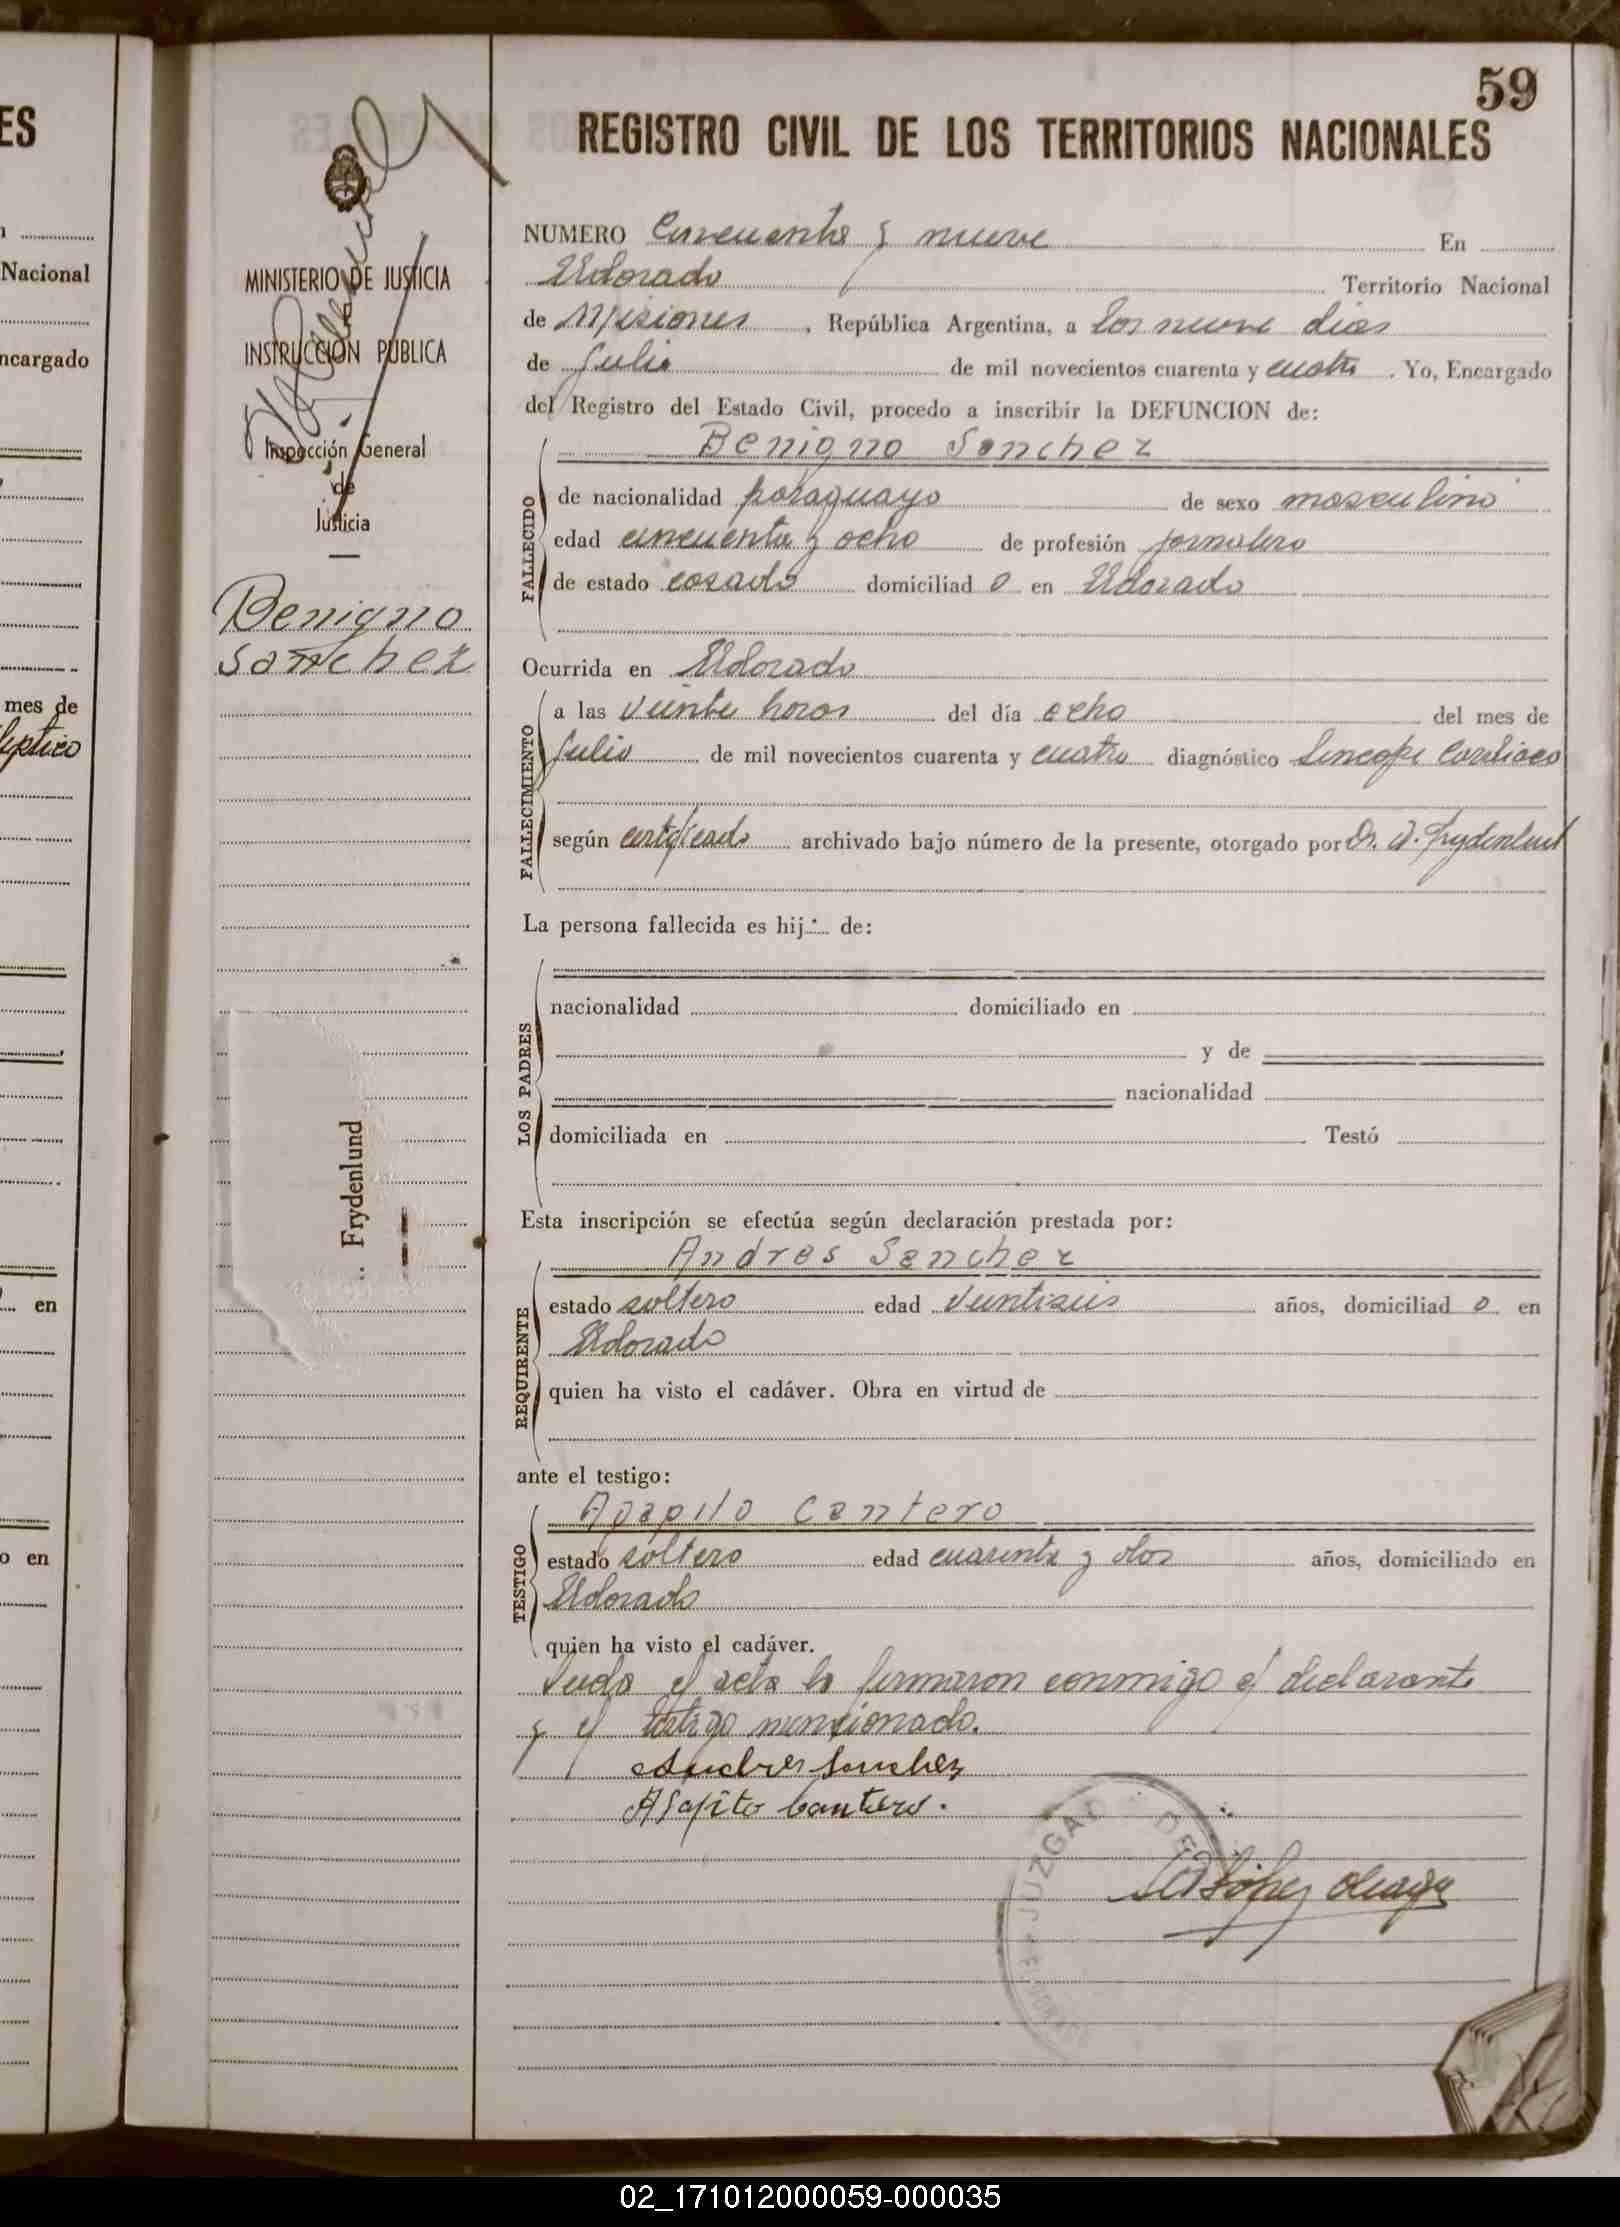 ES
Nacional
ncargado
mes de
en
o en
59
REGISTRO CIVIL DE LOS TERRITORIOS NACIONALES
MINISTERIO DE JUSTICIA
INSTRUCCION PUBLICA
Inspección General
de
Justicia
Benigno
Sanchez
Frydenlund
NUMERO Cincuenta y nueve En
Eldorado Territorio Nacional
de Misiones, República Argentina, a los nueve dias
de Julio de mil novecientos cuarenta y cuatro. Yo, Encargado
del Registro del Estado Civil, procedo a inscribir la DEFUNCION de:
Benigno Sanchez
FALLECIDO
de nacionalidad paraguayo de sexo masculino
edad cincuenta y ocho de profesión jornalero
de estado casado domiciliad o en Eldorado
Ocurrida en Eldorado
FALLECIMIENTO
a las veinte horas del día ocho del mes de
Julio de mil novecientos cuarenta y cuatro diagnóstico Sincope Cardiaco
según certificado archivado bajo número de la presente, otorgado por Dr. A. Frydenlund
La persona fallecida es hij de:
LOS PADRES
nacionalidad domiciliado en
y de
nacionalidad
domiciliada en Testó
Esta inscripción se efectúa según declaración prestada por:
Andres Sanchez
REQUIRENTE
estado soltero edad veintiseis años, domiciliad o en
Eldorado
quien ha visto el cadáver. Obra en virtud de
ante el testigo:
Agapito Cantero
TESTIGO
estado soltero edad cuarenta y dos años, domiciliado en
Eldorado
quien ha visto el cadáver.
Leida el acta la firmaron conmigo el declarante
y el testigo mencionado.
Andres Sanchez
Agapito Cantero.
JUZGADO DE
ELDORADO
02_171012000059-000035